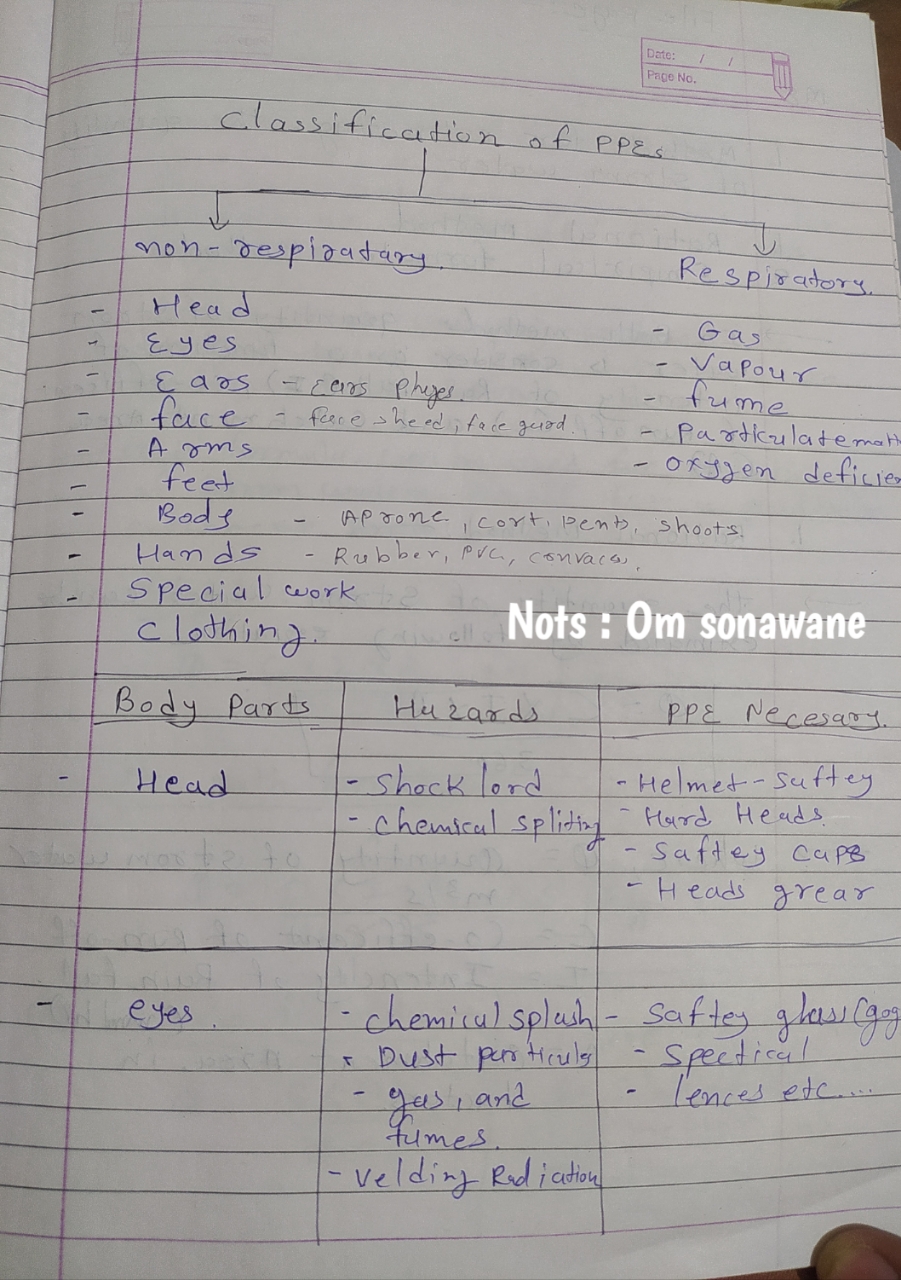 Date: / /
Page No.
Classification of PPEs
non-respiratary.
Respiratory.
- Head
- Eyes
- Ears - Ears Pluges.
- face - face sheed, face gurd.
- Arms
- feet
- Body - Aprone, cort, pents, shoots.
- Hands - Rubber, PVC,
- Special work
clothing.
- Gas
- Vapour
- fume
- Particulatematt
- oxygen deficien
Nots : Om sonawane
Body Parts Huzards PPE Necesary.
- Head
- Shock lord
- Chemical spliting
- Helmet - Suftey
- Hard Heads.
- Saftey caps
- Heads grear
- eyes.
- chemical splush
- Dust particuls
- gas, and
fumes.
- Velding Radiation
- Saftey glass (gog
- Spectical
- lences etc....